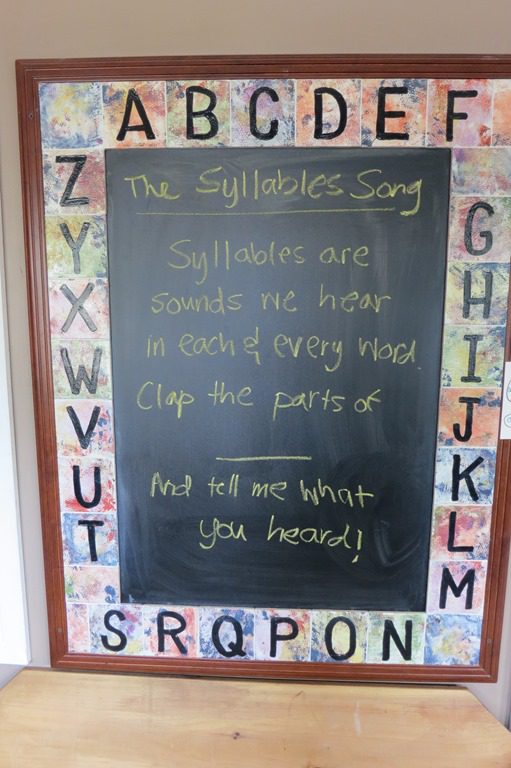 A B C D E F
G
H
I
J
K
L
M
N
O
P
Q
R
S
T
U
V
W
X
Y
Z
The Syllables Song
Syllables are
sounds we hear
in each & every word.
Clap the parts of
______
And tell me what
you heard!